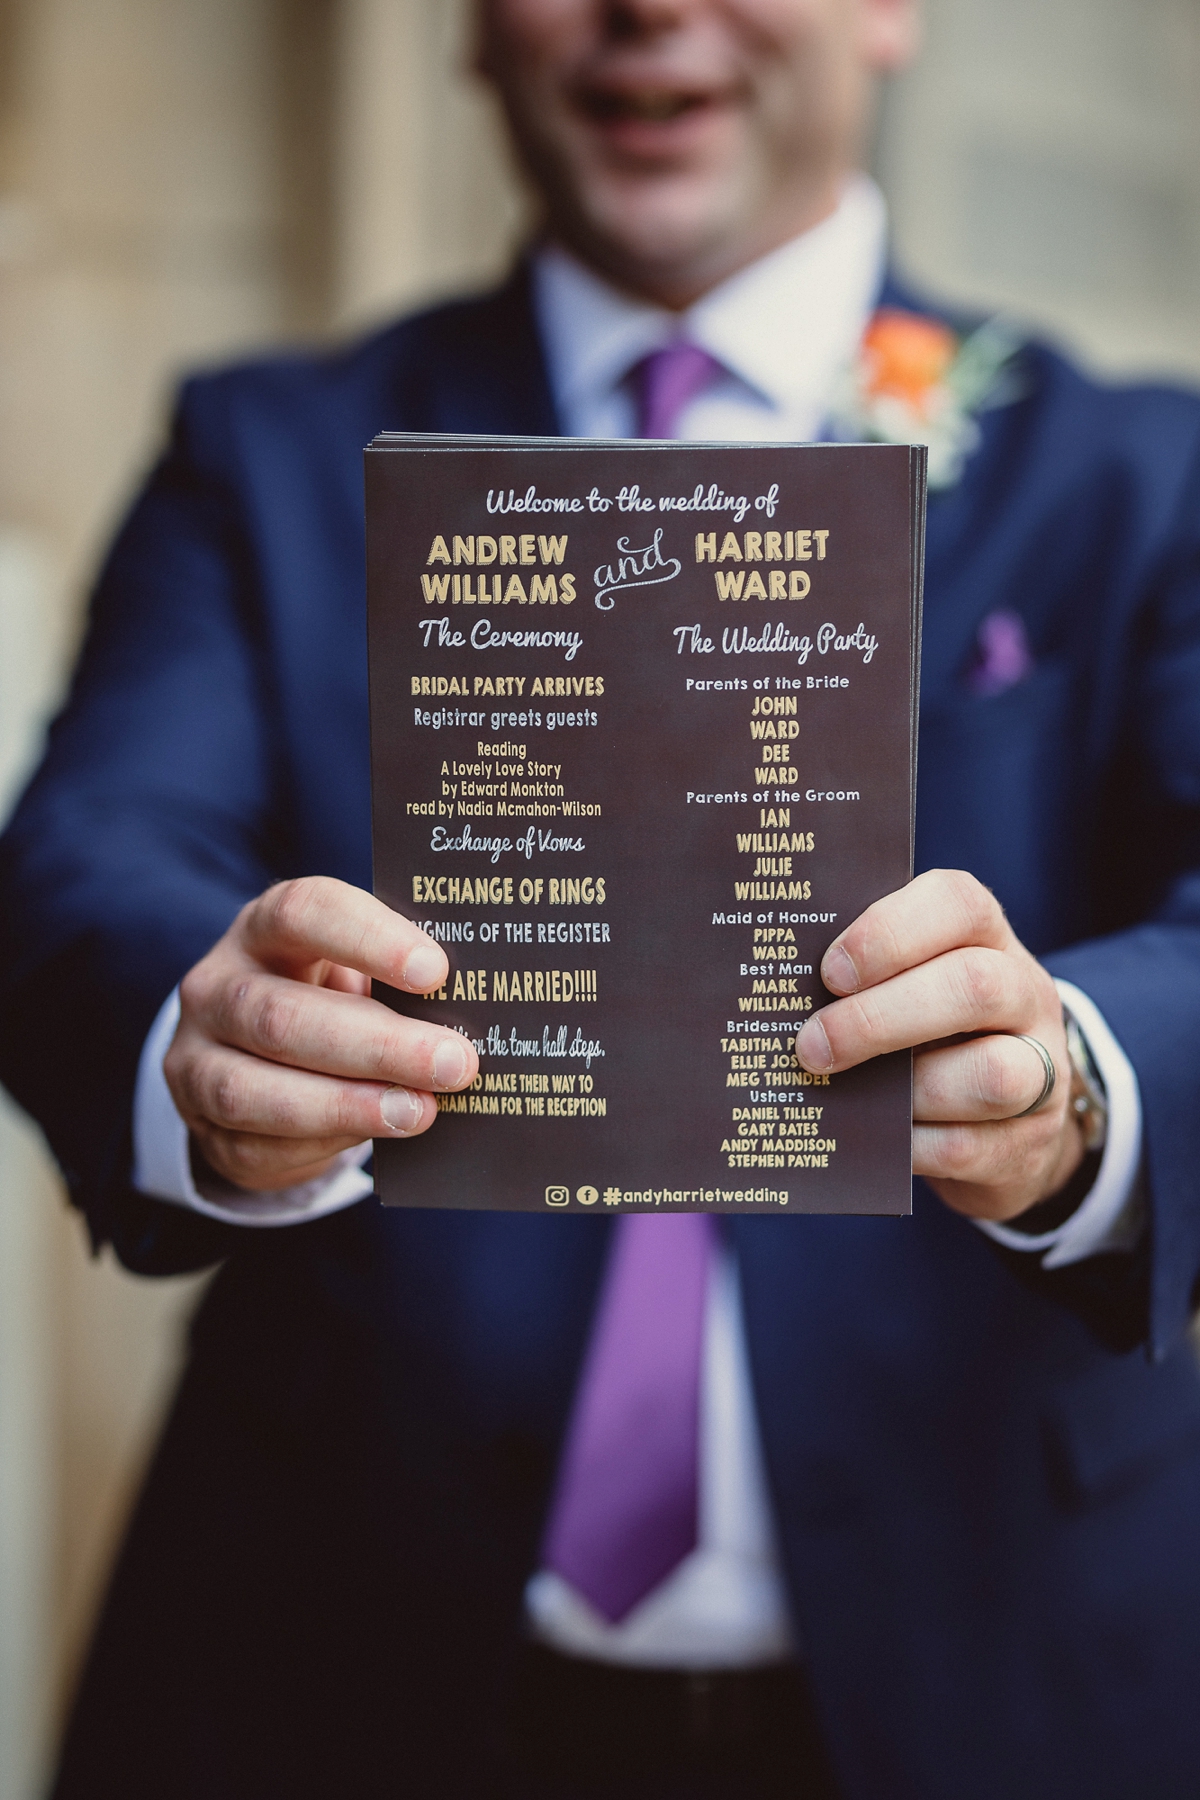 Welcome to the wedding of
ANDREW WILLIAMS and HARRIET WARD
The Ceremony
BRIDAL PARTY ARRIVES
Registrar greets guests
Reading
A Lovely Love Story
by Edward Monkton
read by Nadia Mcmahon-Wilson
Exchange of Vows
EXCHANGE OF RINGS
SIGNING OF THE REGISTER
WE ARE MARRIED!!!!
on the town hall steps.
TO MAKE THEIR WAY TO
FARM FOR THE RECEPTION
The Wedding Party
Parents of the Bride
JOHN
WARD
DEE
WARD
Parents of the Groom
IAN
WILLIAMS
JULIE
WILLIAMS
Maid of Honour
PIPPA
WARD
Best Man
MARK
WILLIAMS
TABITHA
ELLIE
MEG THUNDER
Ushers
DANIEL TILLEY
GARY BATES
ANDY MADDISON
STEPHEN PAYNE
#andyharrietwedding